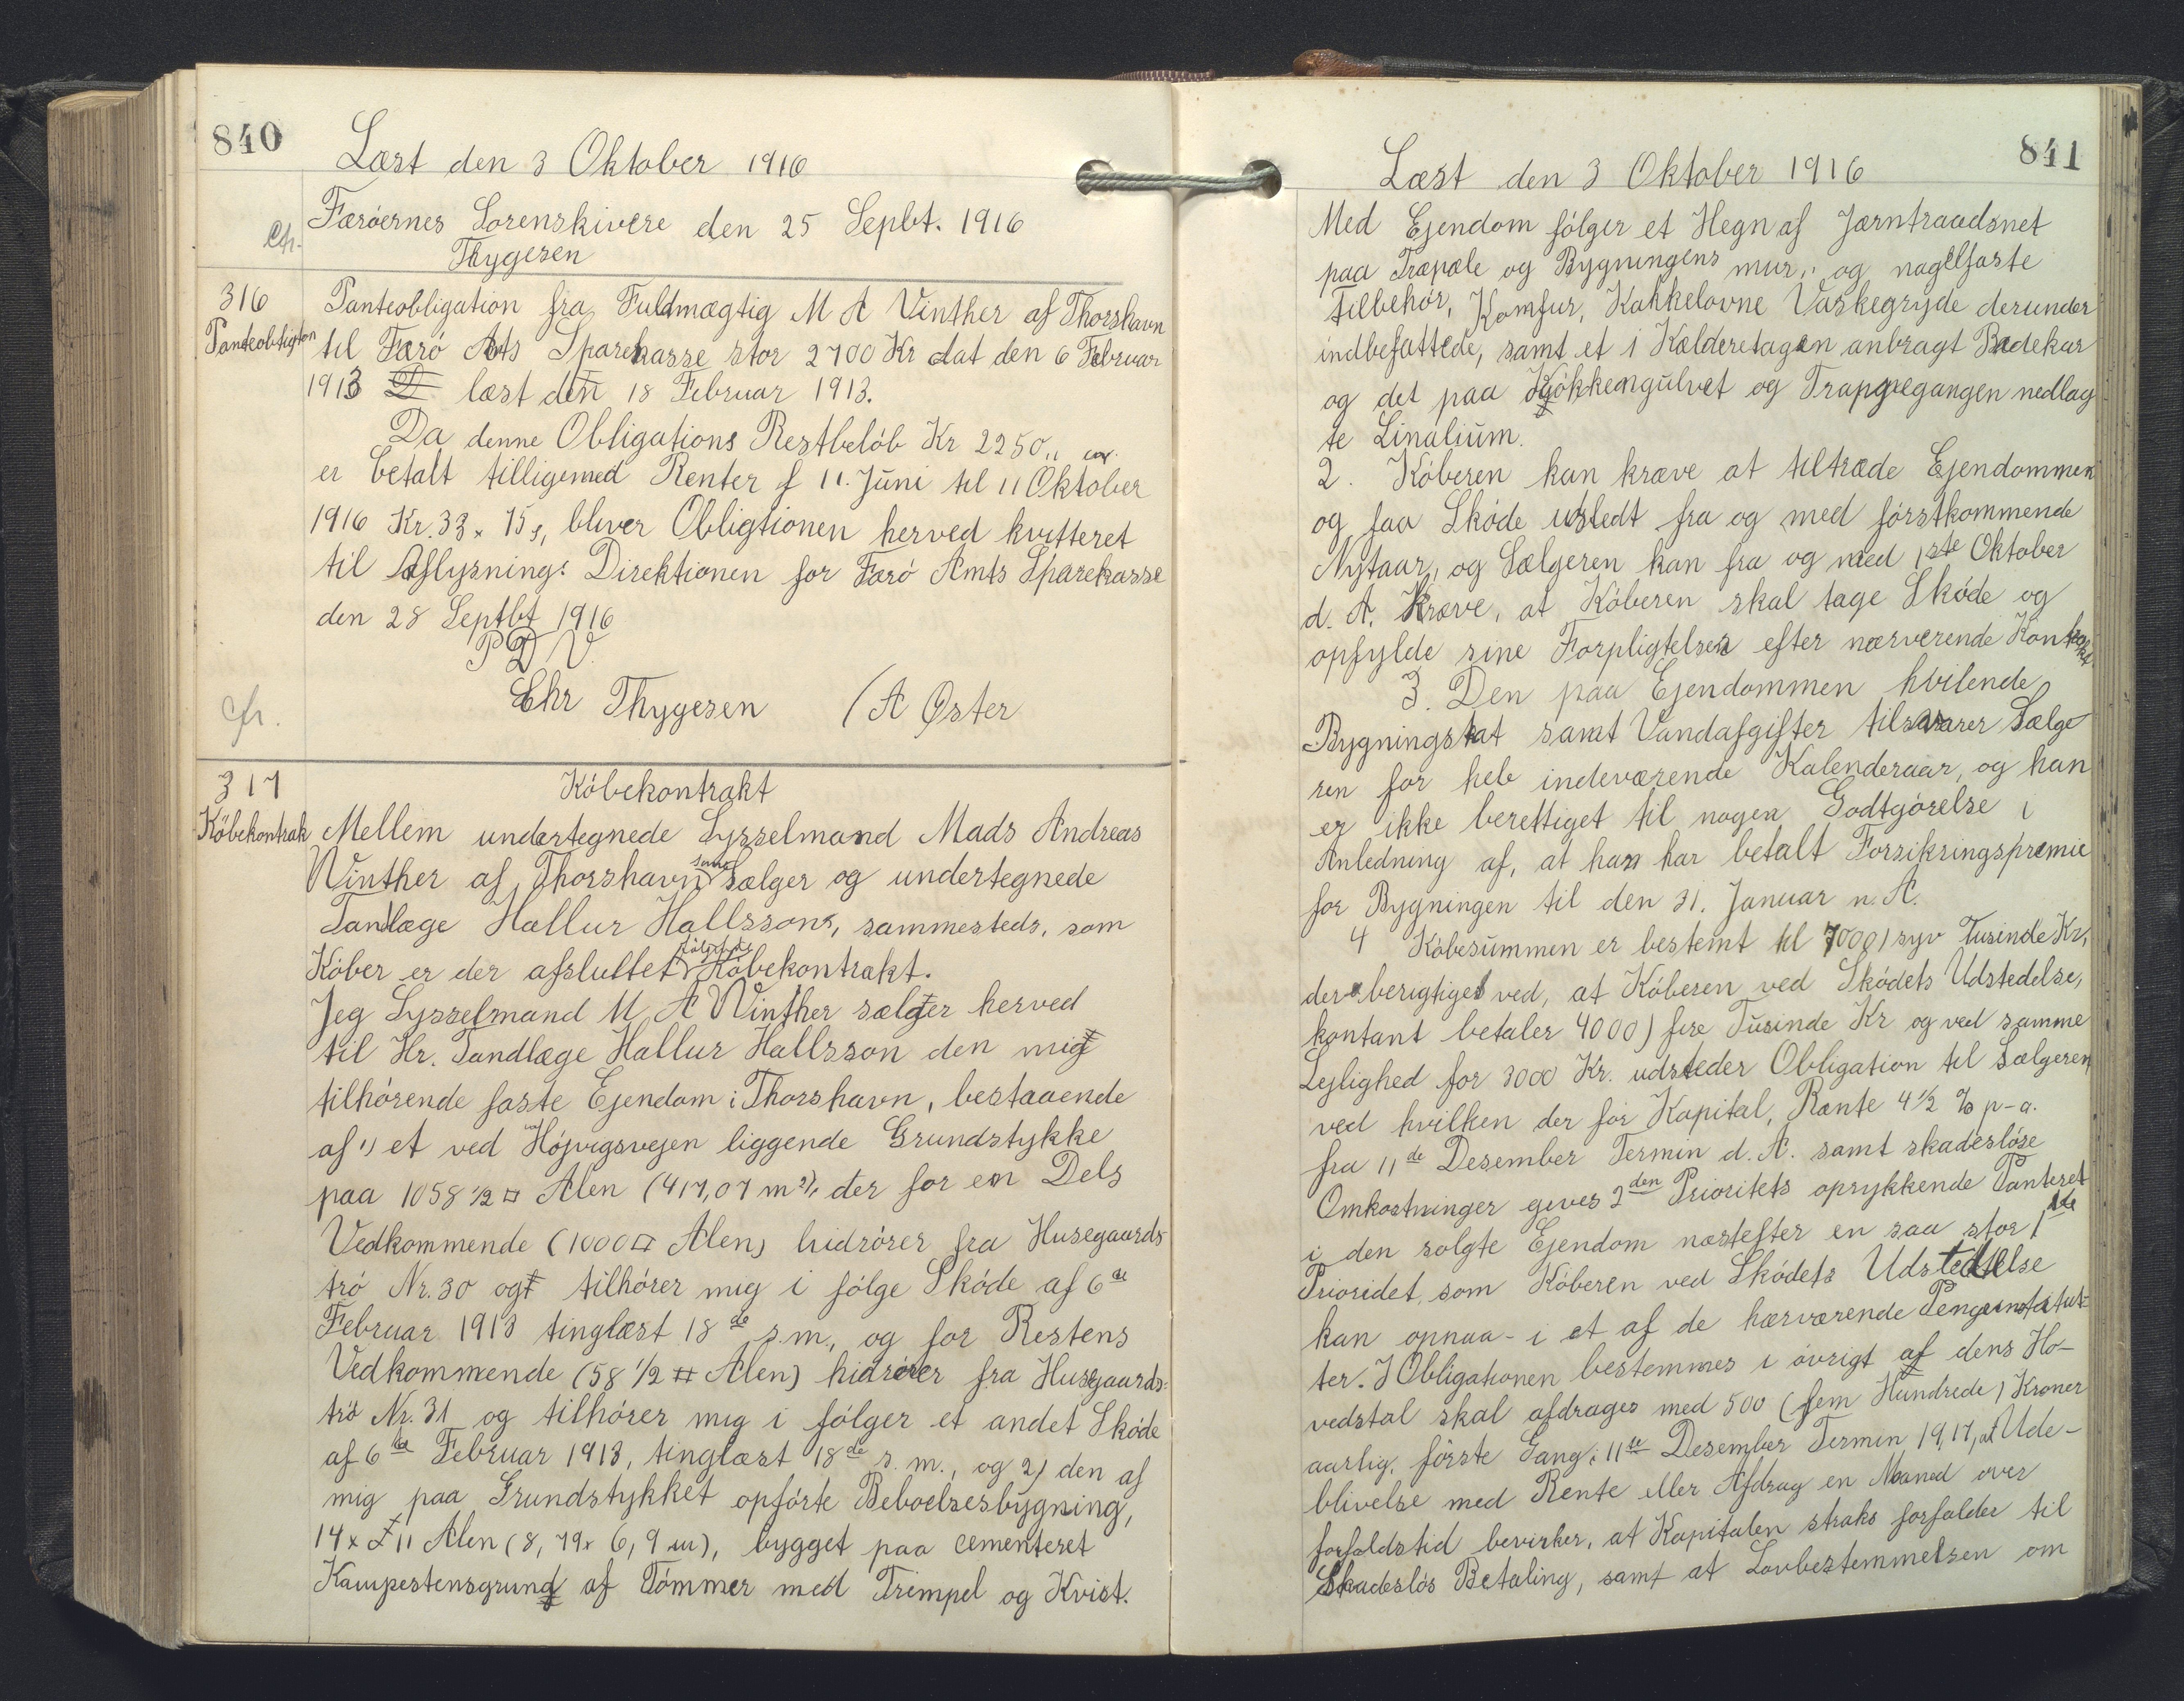 840
Læst den 3 Oktober 1916
Færöernes Sorenskivere den 25 Sepbt. 1916
cfr.
Thygesen
316
Panteobligtion
Panteobligation fra Fuldmægtig M A Vinther af Thorshavn
til Færö Amts Sparekasse stor 2700 Kr dat den 6 Februar
1913 læst den 18 Februar 1913.
Da denne Obligations Restbelöb Kr 2250,,
er betalt tilligemed Renter f 11. Juni til 11 Oktober
1916 Kr. 33 x 75, bliver Obligtionen herved kvitteret
til Aflysning: Direktionen for Færö Amts Sparekasse
den 28 Septbt 1916
P D V.
Chr Thygesen / A Øster
cfr.
317
Köbekontrak
Köbekontrakt
Mellem undertegnede Sysselmand Mads Andreas
Winther af Thorshavn som Sælger og undertegnede
Tandlæge Hallur Hallssons, sammesteds, som
Köber er der afsluttet fölgende Köbekontrakt.
Jeg Sysselmand M A Winther sælger herved
til Hr. Tandlæge Hallur Hallsson den mig
tilhörende faste Ejendom i Thorshavn, bestaaende
af 1) et ved Höjvigsvejen liggende Grundstykke
paa 1058 1/2 □ Alen (417,07 m²), der for en Dels
Vedkommende (1000 □ Alen) hidrörer fra Husegaards-
trö Nr. 30 og tilhörer mig i fölge Sköde af 6 de
Februar 1913 tinglæst 18 de s.m., og for Restens
Vedkommende (58 1/2 □ Alen) hidrörer fra Husegaards-
trö Nr. 31 og tilhörer mig i fölger et andet Sköde
af 6 de Februar 1913, tinglæst 18 de s. m., og 2) den af
mig paa Grundstykket opförte Beboelsesbygning,
14 x 11 Alen (8,79 x 6,9 m), bygget paa cementeret
Kampestensgrund af Tömmer med Trimpel og Kvist.
841
Læst den 3 Oktober 1916
Med Ejendom fölger et Hegn af Jærntraadsnet
paa Træpæle og Bygningens mur,, og nagelfaste
tilbehör, Komfur, Kakkelovne Vaskegryde derunder
indbefattede, samt et i Kælderetagen anbragt Badekar
og det paa Kjökkengulvet og Trappegangen nedlag
te Linalium.
2. Köberen kan kræve at tiltræde Ejendommen
og faa Sköde ustedt fra og med förstkommende
Nytaar, og Sælgeren kan fra og med 1ste Oktober
d. A. Kræve, at Köberen skal tage Sköde og
opfylde sine Forpligtelser efter nærværende Kontrakt
3. Den paa Ejendommen hvilende
Bygningskat samt Vandafgifter tilsvarer Sælge
ren for hele indeværende Kalenderaar, og han
er ikke berettiget til nogen Godtgörelse i
Anledning af, at han har betalt Forsikringspremie
for Bygningen til den 31. Januar n. A.
4 Köbesummen er bestemt til 7000) syv Tusinde Kr,
der berigtiges ved, at Köberen ved Skódets Udstedelse,
kontant betaler 4000) fire Tusinde Kr og ved samme
Lejlighed for 3000 Kr. udsteder Obligation til Sælgeren
ved hvilken der for Kapital, Rante 4 1/2 % p-a.
fra 11 de Desember Termin d. A. samt skadeslöse
Omkostninger gives 2 den Prioritets oprykkende Panteret
i den solgte Ejendom næstefter en saa stor 1 ste
Prioridet, som Köberen ved Skódets Udstedelse
kan opnaa - i et af de hærværende Pengeinstitut-
ter. I Obligationen bestemmes i övrigt af dens Ho-
vedstol skal afdrages med 500 (fem Hundrede) Kroner
aarlig, förste Gang i 11 te Desember Termin 1917, at Ude-
blivelse med Rente eller Afdrag en Maaned over
forfaldstid bevirker, at Kapitalen straks forfalder til
Skadeslös Betaling, samt at Lovbestemmelsen om